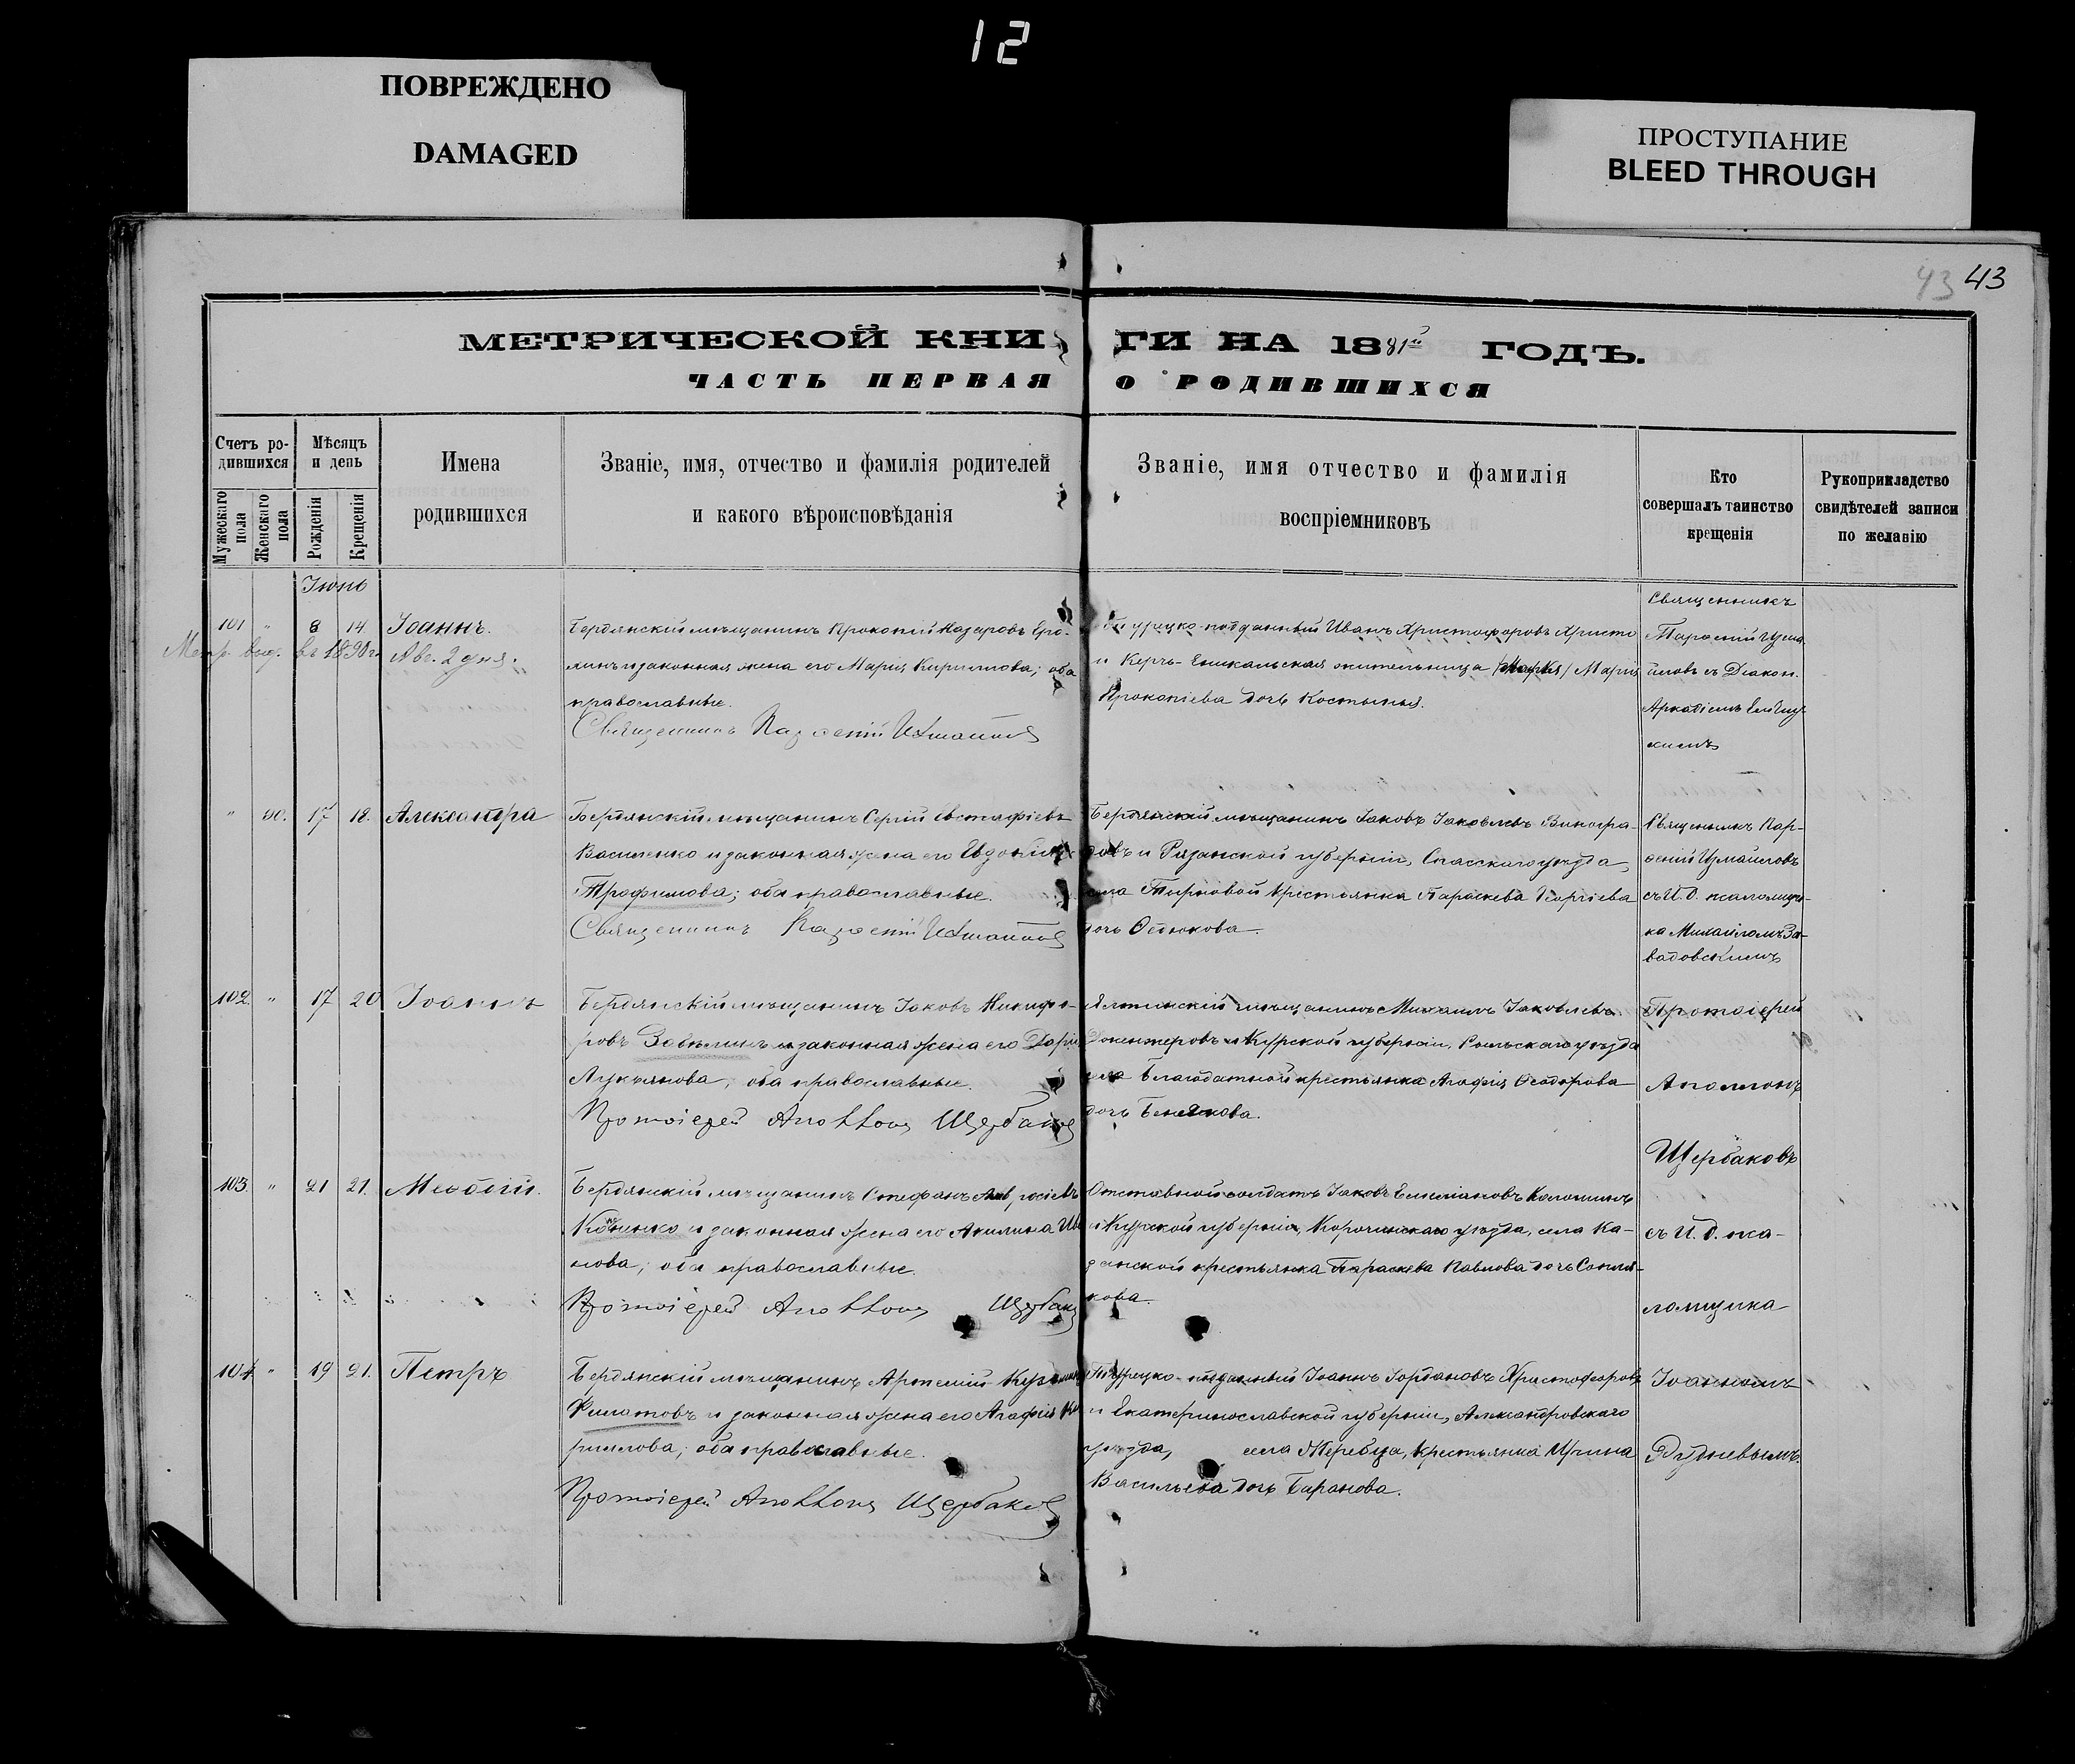 12
ПОВРЕЖДЕНО
DAMAGED
ПРОСТУПАНИЕ
BLEED THROUGH
43 43
МЕТРИЧЕСКОЙ КНИГИ НА 1881й ГОДЪ.
ЧАСТЬ ПЕРВАЯ О РОДИВШИХСЯ
Счетъ ро-
дившихся
Мужескаго пола
Женскаго пола
Мѣсяцъ
и день
Рожденія
Крещенія
Имена
родившихся
Званіе, имя, отчество и фамилія родителей
и какого вѣроисповѣданія
Званіе, имя отчество и фамилія
воспріемниковъ
Кто
совершалъ таинство
крещенія
Рукоприкладство
свидѣтелей записи
по желанію
Іюнь
101 " 8 14. Іоаннъ.
Метр. выд. въ 1890 г. Авг. 2 дня.
Бердянскій мѣщанинъ Прокопій Назаровъ Еро-
минъ и законная жена его Марія Кириллова; оба
православные.
Священникъ Парѳеній Измаиловъ
Турецко-подданный Иванъ Христофоровъ Христо
и Керчь-Еникальская жительница Марія
Прокопіева дочь Костынья.
Священникъ
Парѳеній Изма
иловъ съ Діакон.
Аркадіемъ
" 90. 17 18. Александра
Бердянскій мѣщанинъ Сергій Евстафіевъ
Василенко и законная жена его Евдокія
Трофимова; оба православные.
Священникъ Парѳеній Измаиловъ
Бердянскій мѣщанинъ Іаковъ Іаковлевъ Виногра-
довъ и Рязанской губерніи, Спасскаго уѣзда,
села Тырновой крестьянка Параскева Георгіева
дочь Ѳедюкова.
Священникъ Пар-
ѳеній Измаиловъ
съ И. д. псаломщи-
ка Михаиломъ За-
вадовскимъ
102. " 17 20 Іоаннъ
Бердянскій мѣщанинъ Іаковъ Никифо-
ровъ Завялинъ и законная жена его Дарія
Лукьянова; оба православные.
Протоіерей Аполлонъ Щербаковъ
Ялтинскій мѣщанинъ Михаилъ Іаковлевъ
и Курской губерніи, Рыльскаго уѣзда
села Благодатной крестьянка Агафія Ѳеодорова
дочь Бенякова.
Протоіерей
Аполлонъ
Щербаковъ
съ И. д. пса-
ломщика
Іоанномъ
Рудневымъ.
103. " 21 21. Меѳодій.
Бердянскій мѣщанинъ Стефанъ Амвросіевъ
Коненко и законная жена его Акилина Ива
нова; оба православные.
Протоіерей Аполлонъ Щербаковъ
Отставной солдатъ Іаковъ Емиліановъ Калошинъ
и Курской губерніи, Корочанскаго уѣзда, села Ка-
крестьянка Параскева Павлова дочь
кова.
104. " 19 21. Петръ
Бердянскій мѣщанинъ Артемій Кузьминъ
Филатовъ и законная жена его Агафія Ки
риллова; оба православные.
Протоіерей Аполлонъ Щербаковъ
Турецко-подданный Іоаннъ Іордановъ Христофоровъ
и Екатеринославской губерніи, Александровскаго
уѣзда, села Жеребца, крестьянка Ирина
Васильева дочь Баранова.